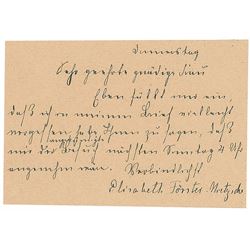 Donnerstag
Sehr geehrte gnädige Frau
Eben fällt mir ein,
daß ich in meinem Brief vielleicht
vergessen habe Ihnen zu sagen, daß
mir der Besuch nächsten Sonntag 4 Uhr
angenehm wäre. Verbindlichst
Elisabeth Förster-Nietzsche